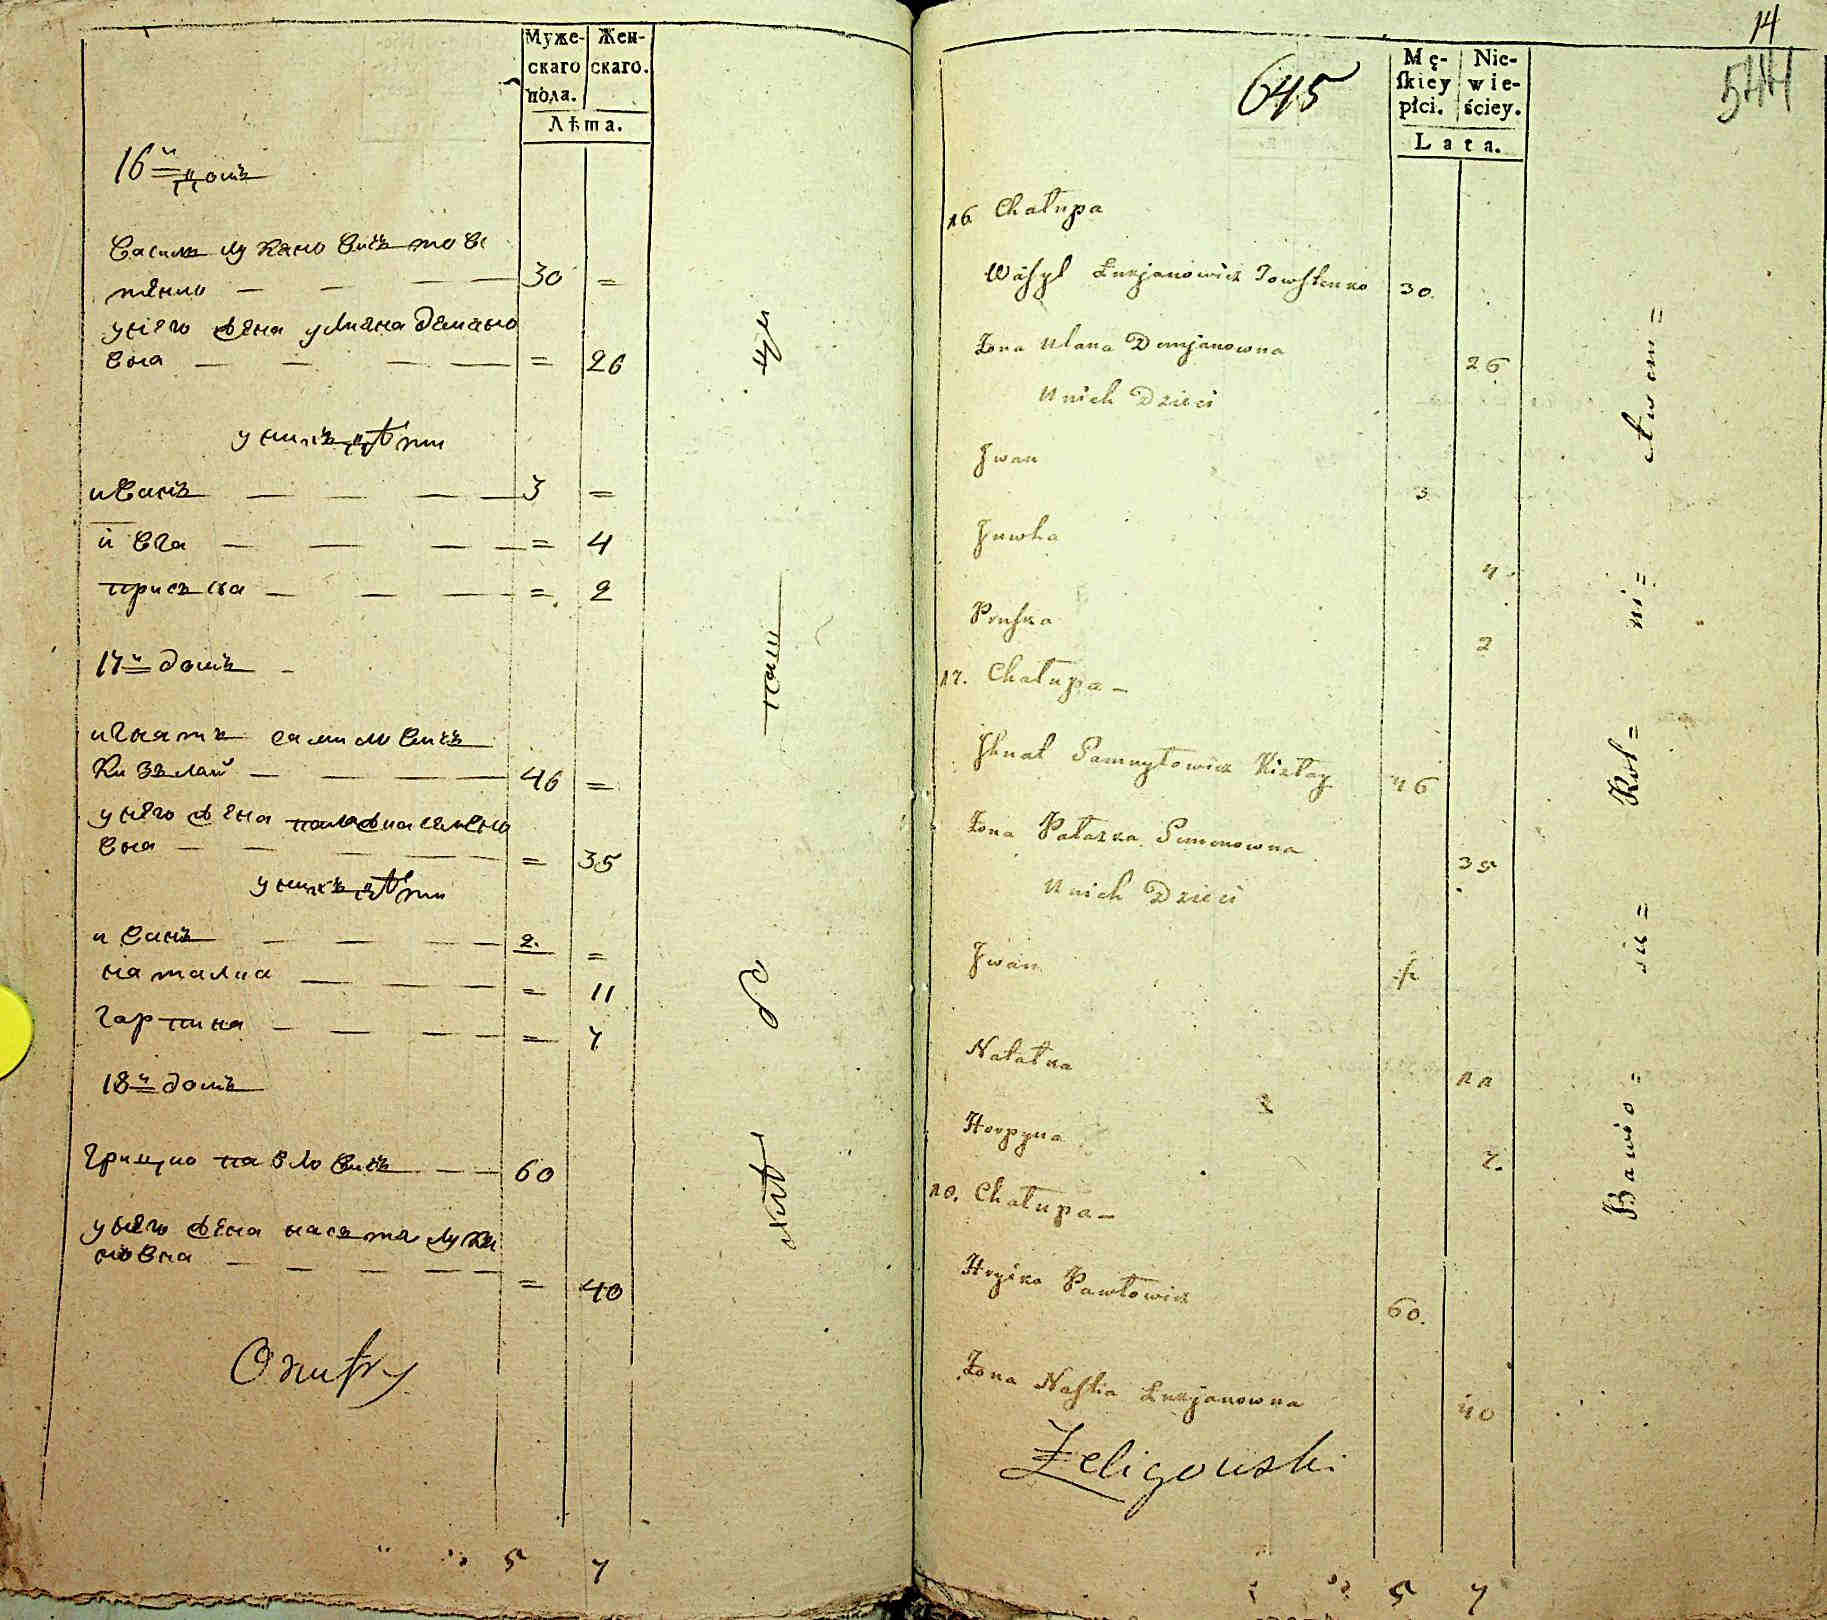 Муже-
скаго
пола.
Жен-
скаго.
Лѣта.
16й домъ
Василь Лукяновичъ товс
тенко — — — 30 =
у него жена улияна демяно
вна — — — = 26
у нихъ дѣти
иванъ — — — 3 =
ивга — — — = 4
приська — — — = 2
17й домъ
игнатъ самиловичъ
кизълай — — — 46 =
у него жена палажка семено
вна — — — = 35
у нихъ дѣти
иванъ — — — 2. =
наталка — — — = 11
гарпина — — — = 7
18й домъ
грицко павловичъ — — 60
у него жена настя луки
новна — — — = 40
5 7
14
645
544
Mę-
ſkiey
płci.
Nie-
wie-
ściey.
Lata.
16 Chałupa
Wasyl Łukjanowicz Towstenko 30.
Żona Ulana Demjanowna 26
U nich Dzieci
Jwan 3
Juwha 4
Pruska 2
17. Chałupa —
Jhnat Samuyłowicz Kizłay 46
Żona Pałazka Semenowna 35
U nich Dzieci
Jwan
Nałałka 11
Horpyna 7.
18. Chałupa —
Hryćko Pawłowicz 60.
Żona Nastia Łukjanowna 40
Żeligowski
5 7